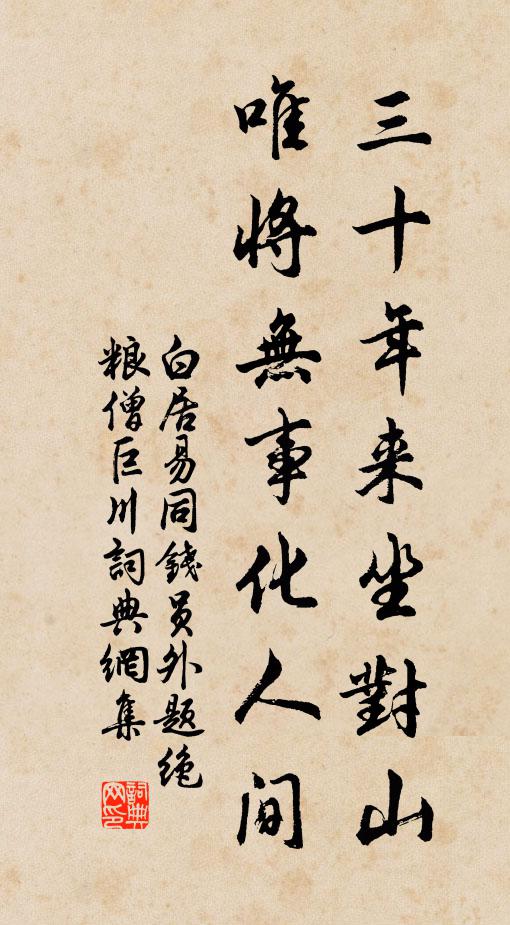 三十年来坐對山
唯將無事化人间
白居易同錢员外題绝
粮僧巨川詞典網集
詞典网印